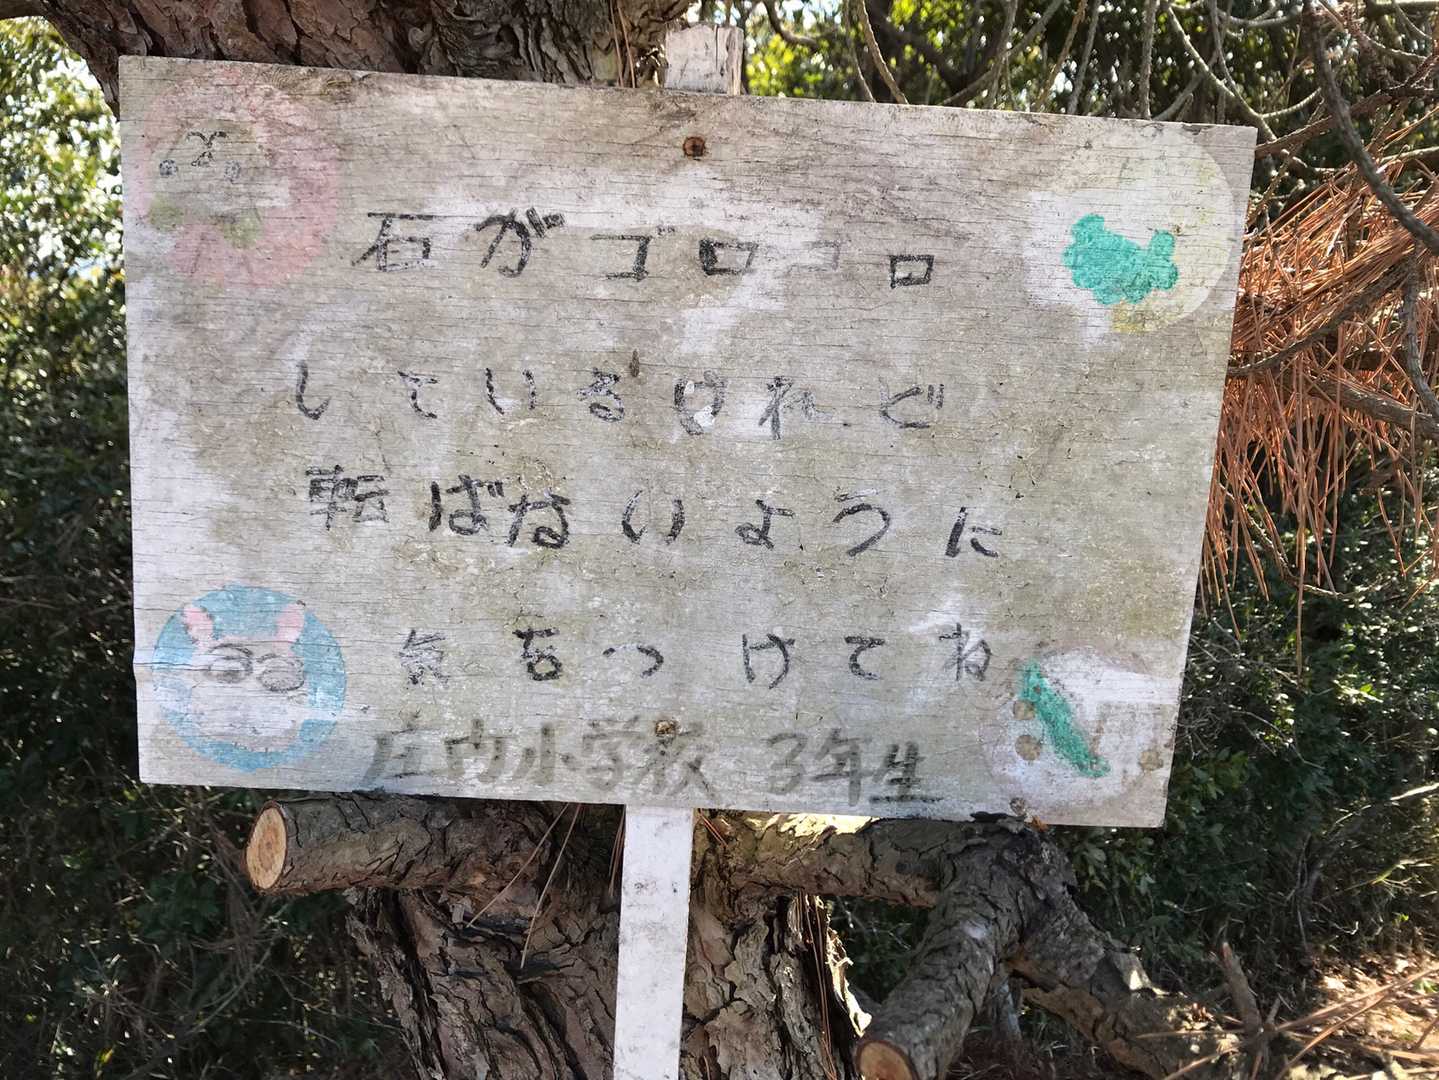 石がゴロゴロ
しているけれど
転ばないように
気をつけてね
庄内小学校 3年生